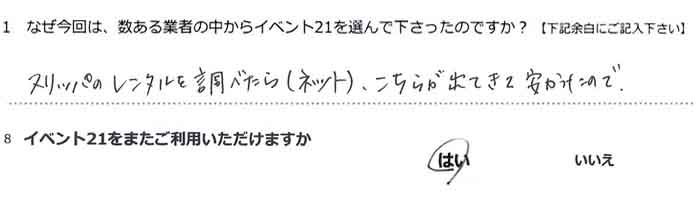 1 なぜ今回は、数ある業者の中からイベント21を選んで下さったのですか？【下記余白にご記入下さい】
スリッパのレンタルを調べたら(ネット)、こちらが出てきて安かったので.
8 イベント21をまたご利用いただけますか
はい いいえ